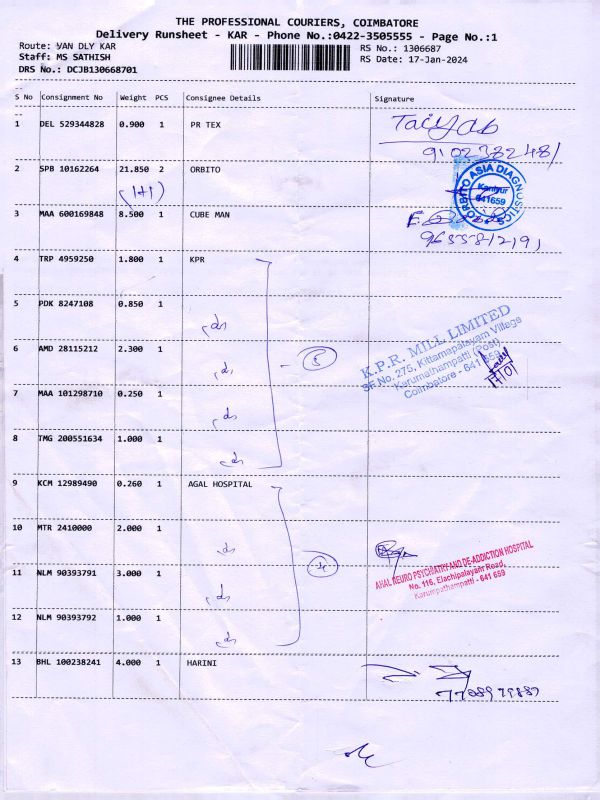 THE PROFESSIONAL COURIERS, COIMBATORE
Delivery Runsheet - KAR - Phone No.:0422-3505555 - Page No.:1
Route: VAN DLY KAR
Staff: MS SATHISH
DRS No.: DCJB130668701
RS No.: 1306687
RS Date: 17-Jan-2024
S No Consignment No Weight PCS Consignee Details Signature
1 DEL 529344828 0.900 1 PR TEX
Taiyab
9102382481
2 SPB 10162264 21.850 2 ORBITO
(1+1)
ORBITO ASIA DIAGNOSTICS
Kaniyur
641659
3 MAA 600169848 8.500 1 CUBE MAN
4 TRP 4959250 1.800 1 KPR
5 PDK 8247108 0.850 1
6 AMD 28115212 2.300 1
5
K.P.R. MILL LIMITED
SF No. 275, Kittampalayam Village
Karumathampatti (Post)
Coimbatore - 641 659
7 MAA 101298710 0.250 1
8 TMG 200551634 1.000 1
9 KCM 12989490 0.260 1 AGAL HOSPITAL
10 MTR 2410000 2.000 1
11 NLM 90393791 3.000 1
4
AHAL NEURO PSYCHIATRY AND DE-ADDICTION HOSPITAL
No. 116, Elachipalayam Road,
Karumpathampatti - 641 659
12 NLM 90393792 1.000 1
13 BHL 100238241 4.000 1 HARINI